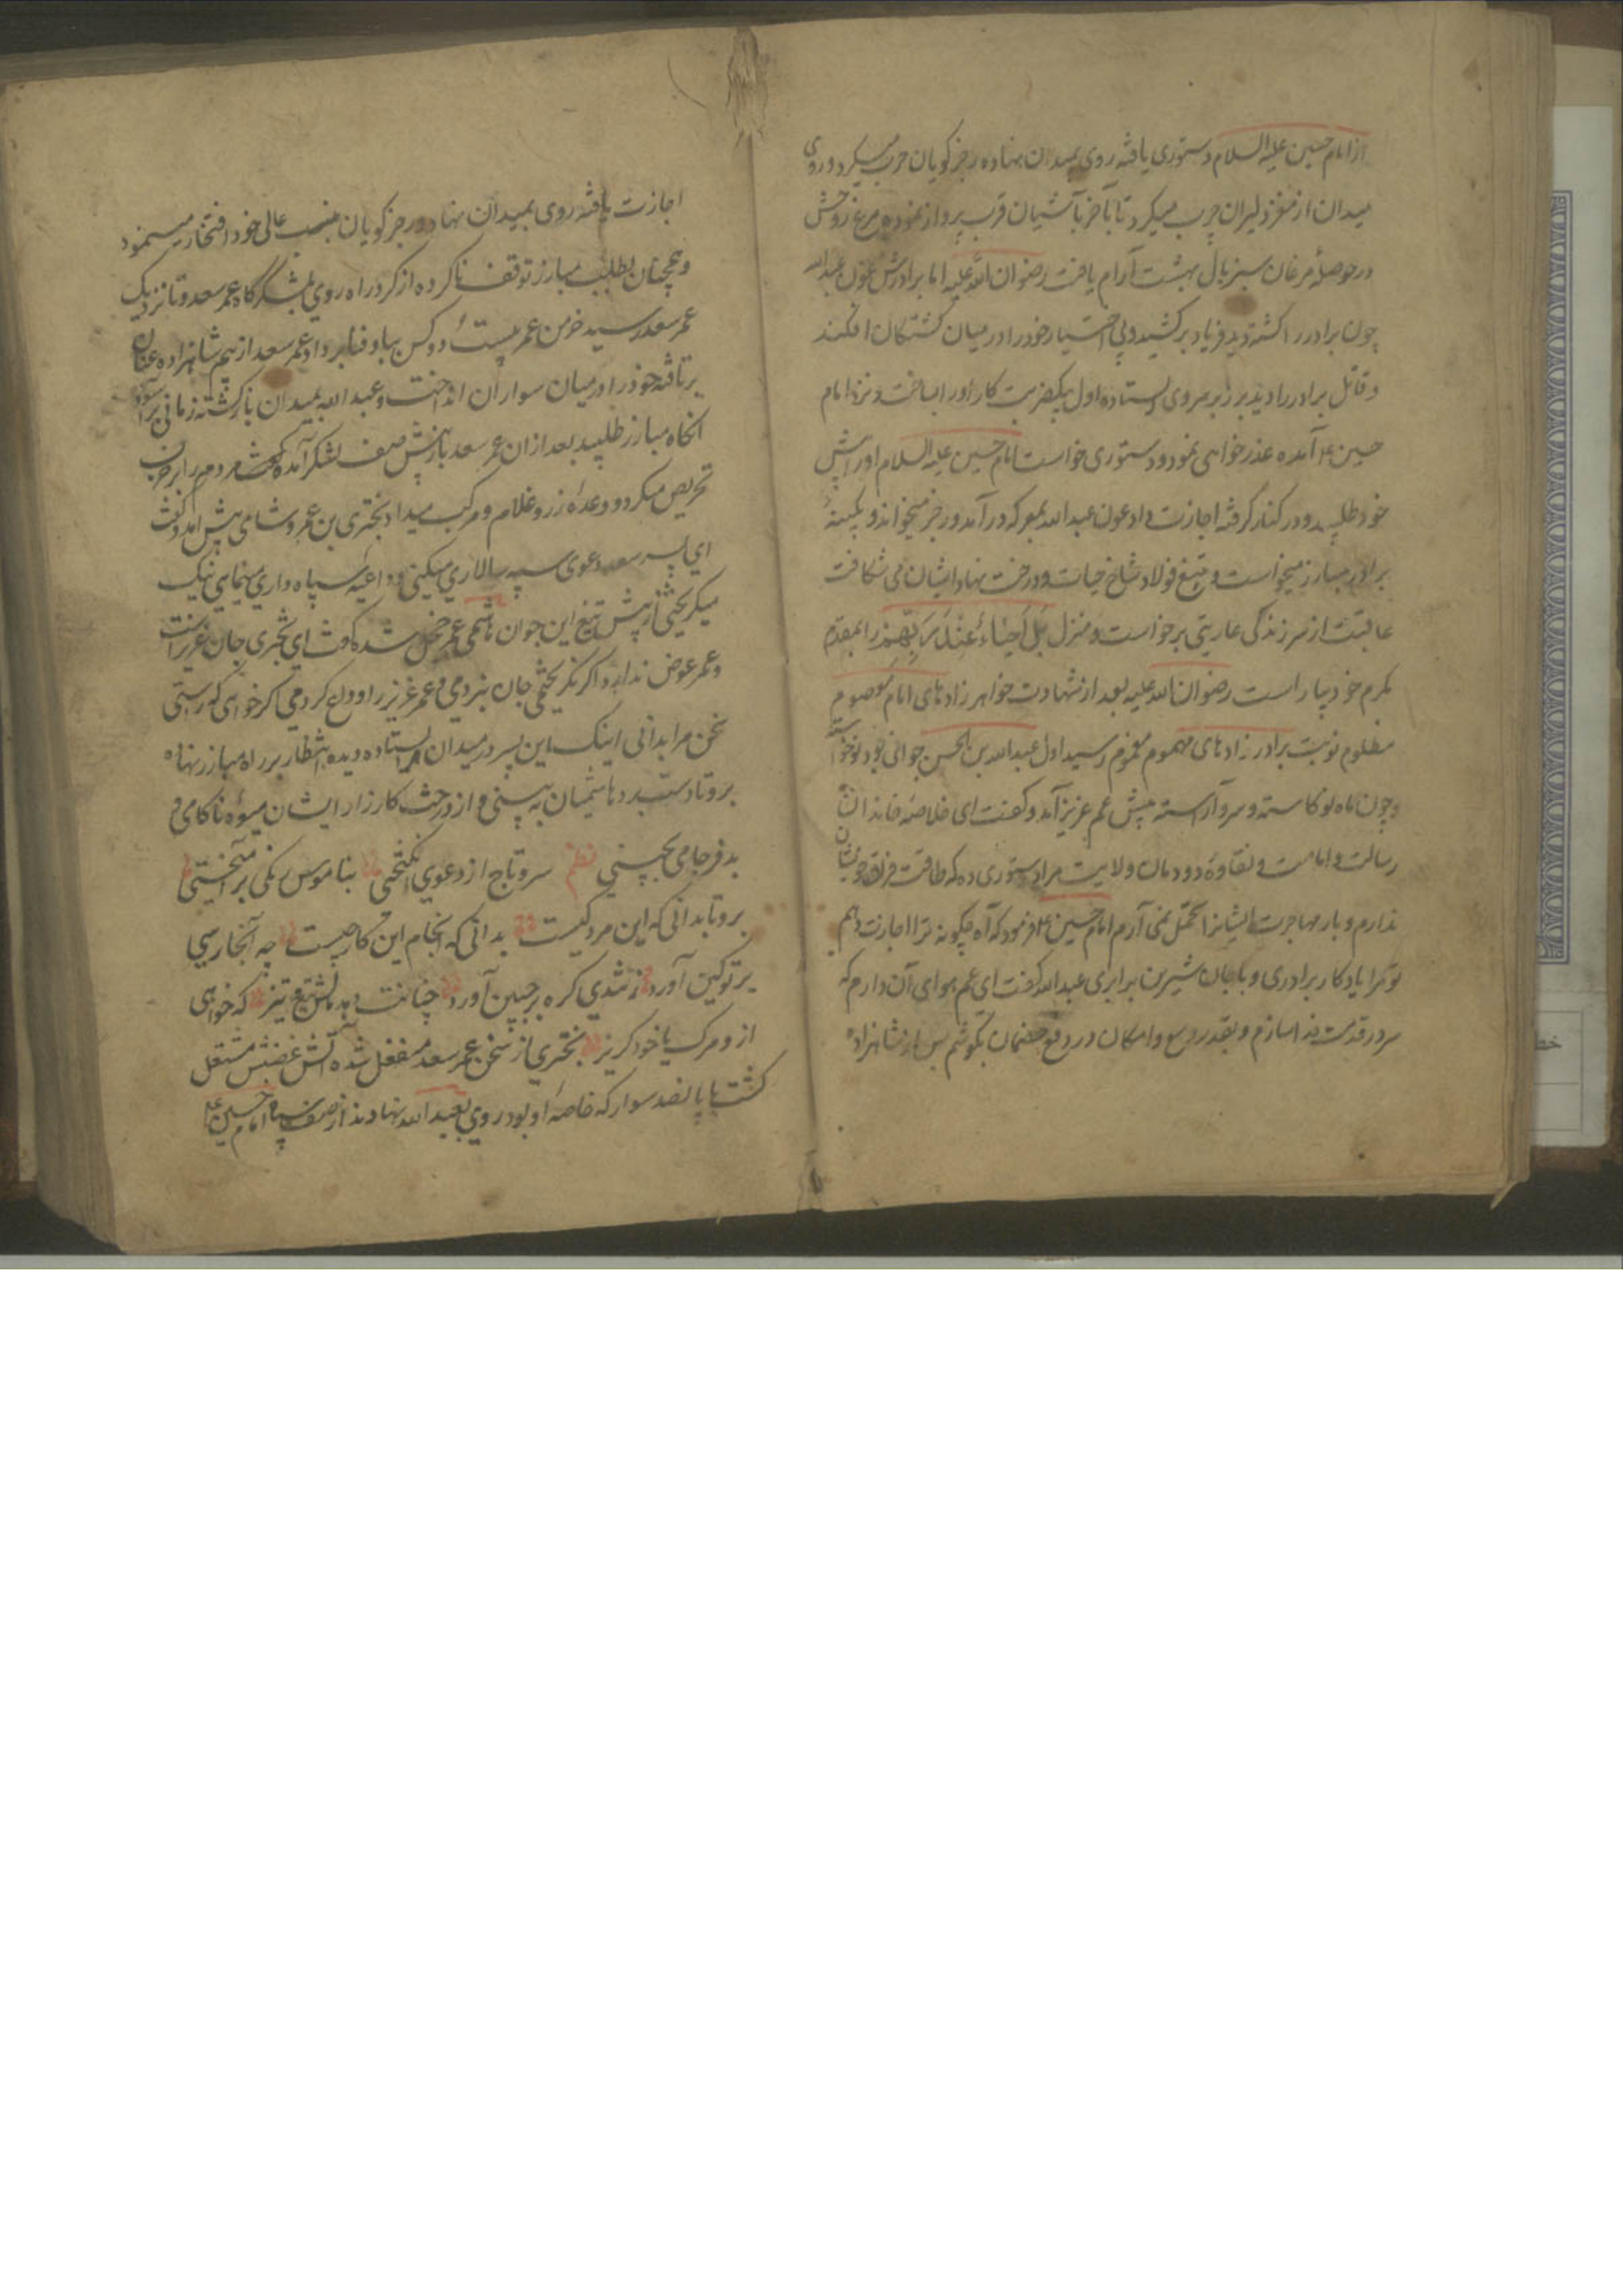 از امام حسین علیه السلام دستوری یافته روی بمیدان نهاده رجز کویان حرب میکرد و روی
میدان از مغز دلیران چرب میکرد تا بآخر بآشیان قرب پرواز نموده مرغ روحش
در حوصلهٔ مرغان سبز بال بهشت آرام یافت رضوان الله علیه اما برادرش عون عبدالله
چون برادر را کشته دید فریاد برکشید و بی اختیار خود را در میان کشتکان افکند
و قاتل برادر را دید برزبر سروی ایستاده اول بیکضربت کار او را بساخت و نزد امام
حسین ع آمده عذرخواهی نمود و دستوری خواست امام حسین علیه السلام او را پیش
خود طلبید و در کنار گرفته اجازت داد عون عبدالله بمعرکه درآمد و رجز میخواند و بکینهٔ
برادر مبارز میخواست و بتیغ فولاد شاخ حیات و درخت نهاد ایشان می شکافت
عاقبت از سر زندکی عاریتی برخواست و منزل بَل اَحیاءٌ عِندَ رَبِّهِم را بمقدم
مکرم خود بیاراست رضوان الله علیه بعد از شهادت خواهرزادهای امام معصوم
مظلوم نوبت برادرزادهای مهموم مغموم رسید اول عبدالله بن الحسن جوانی بود نوخواسته
و چون ماه نو کاسته و سرو آراسته پیش عم عزیز آمد و کفت ای خلاصهٔ خاندان
رسالت و امامت و نقاوهٔ دودمان ولایت مرا دستوری ده که طاقت فراق خویشان
ندارم و بار مهاجرت ایشانرا تحمل نمی آرم امام حسین ع فرمود که آه چکونه ترا اجازت دهم
تو مرا یادکار برادری و با جان شیرین برابری عبدالله کفت ای عم هوای آن دارم که
سر در قدمت فدا سازم و بقدر وسع و امکان در دفع خصمان بکوشم پس شاهزاده
اجازت یافته روی بمیدان نهاد و رجز کویان بنسب عالی خود افتخار مینمود
و همچنان بطلب مبارز توقف ناکرده از کرد راه روی بلشکرکاه عمر سعد و تا نزدیک
عمر سعد رسید خرمن عمر بیست و دو کس بباد فنا بر داد عمر سعد از بیم شاهزاده عنان
برتافته خود را در میان سواران انداخت و عبدالله بمیدان بازکشته زمانی برآسود
آنکاه مبارز طلبید بعد از آن عمر سعد باز پیش صف لشکر آمده مردم را بر حرب
تحریص میکرد و وعدهٔ زر و غلام و مرکب میداد بختری بن عمرو شامی پیش آمد و کفت
ای پسر سعد دعوی سپه سالاری میکنی و داعیه سپاه داری مینمایی نیک
میکریختی از پیش تیغ این جوان هاشمی عمر خجل شد کفت ای بختری جان عزیز است
و عمر عوض ندارد اکر نکریختمی جان نبردمی و عمر عزیز را وداع کردمی اکر خواهی که راستی
سخن مرا بدانی اینک این پسر در میدان ایستاده دیده انتظار بر راه مبارز نهاده
برو تا دستبرد هاشمیان به بینی و از درخت کارزار ایشان میوهٔ ناکامی و
بدفرجامی بچینی نظم سر و تاج از دعوی انکیختی بناموس رنکی برآمیختی
برو تا بدانی که این مرد کیست بدانی که انجام این کار چیست چه آنجا رسی
بر تو کین آورد ز تندی کره بر جبین آورد چنانت دهد مالش از تیغ تیز که خواهی
از و مرک یا خود کریز بختری از سخن عمر سعد منفعل شده آتش غضبش مشتعل
کشت با پانصد سوار که خاصهٔ او بود روی بعبدالله نهادند از صف سپاه امام حسین ع